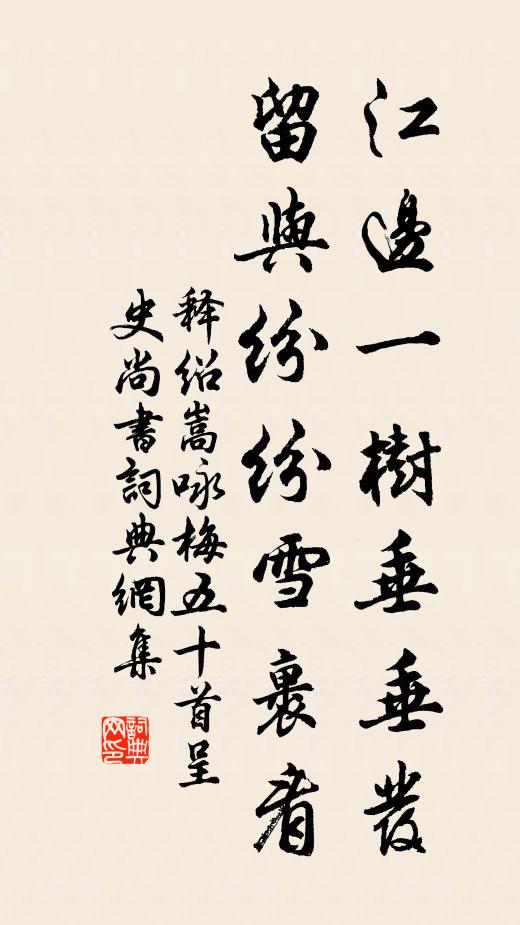 江邊一樹垂垂發
留與紛紛雪裹看
释紹嵩咏梅五十首呈
史尚書詞典網集
詞典
网印